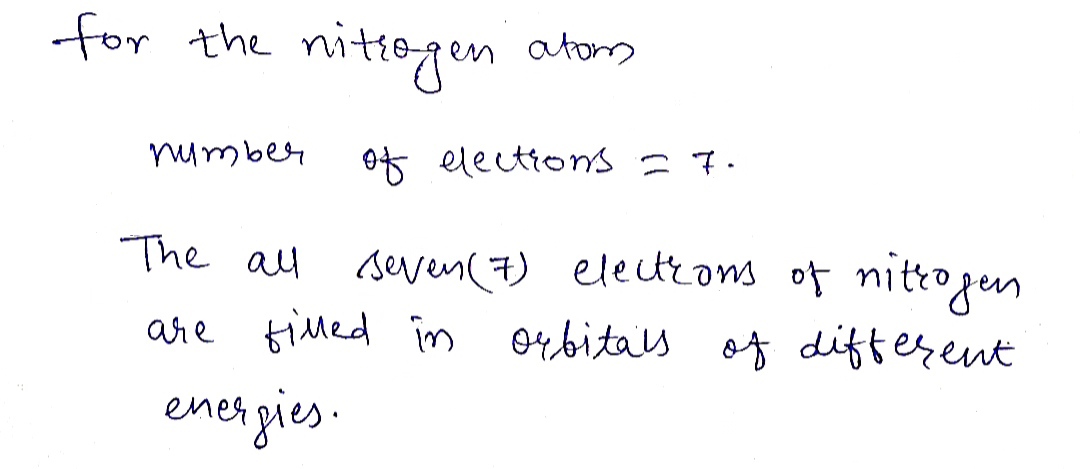 for the nitrogen atom
number of electrons = 7.
The all seven(7) electrons of nitrogen
are filled in orbitals of different
energies.